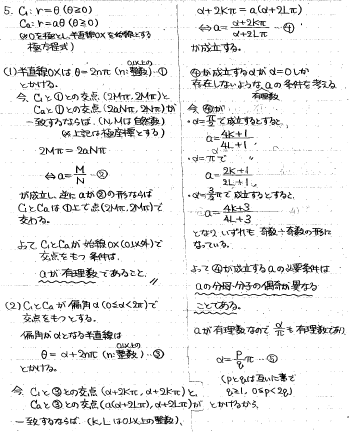 5. C₁: r=θ (θ≧0)
Ca: r=aθ (θ≧0)
(※Oを極とし、半直線OXを始線とする
極方程式)
(1) 半直線OXは θ=2nπ (n:0以上の整数) ‥①
とかける。
今、C₁と①との交点 (2Mπ, 2Mπ)と
Caと①との交点 (2aNπ, 2Nπ)が
一致するならば、(N, Mは自然数)
(※上記は極座標とする)
2Mπ = 2aNπ
⇔ a = M/N ‥②
が成立し、逆に aが②の形ならば
C₁とCaは①上で点(2Mπ, 2Mπ)で
交わる。
よって C₁とCaが始線OX(O以外)で
交点をもつ条件は、
aが有理数であること。
(2) C₁とCaが偏角α(0≦α<2π)で
交点をもつとする。
偏角がαとなる半直線は
θ = α+2nπ (n:0以上の整数) ‥③
とかける。
今、C₁と③との交点 (α+2Kπ, α+2Kπ)と
Caと③との交点 (a(α+2Lπ), α+2Lπ)が
一致するならば、(K, Lは0以上の整数)
α+2Kπ = a(α+2Lπ)
⇔ a = (α+2Kπ)/(α+2Lπ) ‥④
が成立する。
④が成立するαがα=0しか
存在しないような aの条件を考える
有理数
今、④が
・α=π/2で成立するとすると、
a = (4K+1)/(4L+1)
・α=πで 〃
a = (2K+1)/(2L+1)
・α=3/2πで成立するとすると、
a = (4K+3)/(4L+3)
となり、いずれも 奇数÷奇数の形に
なっている。
よって④が成立するaの必要条件は
aの分母・分子の偶奇が異なる
ことである。
aが有理数なので α/πも有理数であり、
α = p/q π ‥⑤
(pとqは互いに素で
q≧1, 0≦p<2q)
とかけるから、